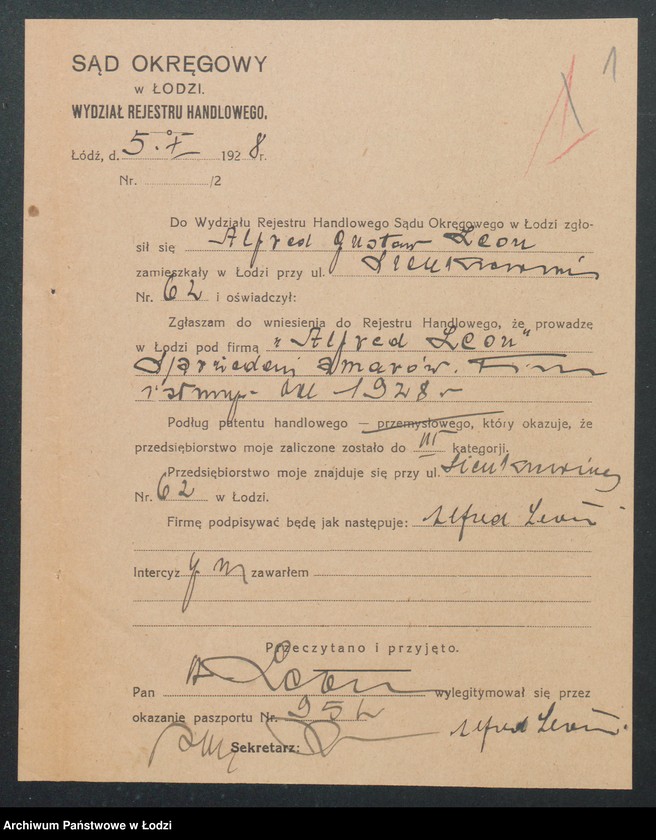 SĄD OKRĘGOWY
w ŁODZI.
WYDZIAŁ REJESTRU HANDLOWEGO,
1
Łódź, d. 5. X 1928 r.
Nr. /2
Do Wydziału Rejestru Handlowego Sądu Okręgowego w Łodzi zgło-
sił się Alfred Gustaw Leon
zamieszkały w Łodzi przy ul. Sienkiewicza
Nr. 62 i oświadczył:
Zgłaszam do wniesienia do Rejestru Handlowego, że prowadzę
w Łodzi pod firmą "Alfred Leon"
smarów. Firma
od 1928 r
Podług patentu handlowego — przemysłowego, który okazuje, że
przedsiębiorstwo moje zaliczone zostało do III kategorji.
Przedsiębiorstwo moje znajduje się przy ul. Sienkiewicza
Nr. 62 w Łodzi.
Firmę podpisywać będę jak następuje: Alfred Leon
Intercyz nie zawarłem
Przeczytano i przyjęto.
Pan A. Leon wylegitymował się przez
okazanie paszportu Nr. 952
Alfred Leon.
Sekretarz:
Archiwum Państwowe w Łodzi